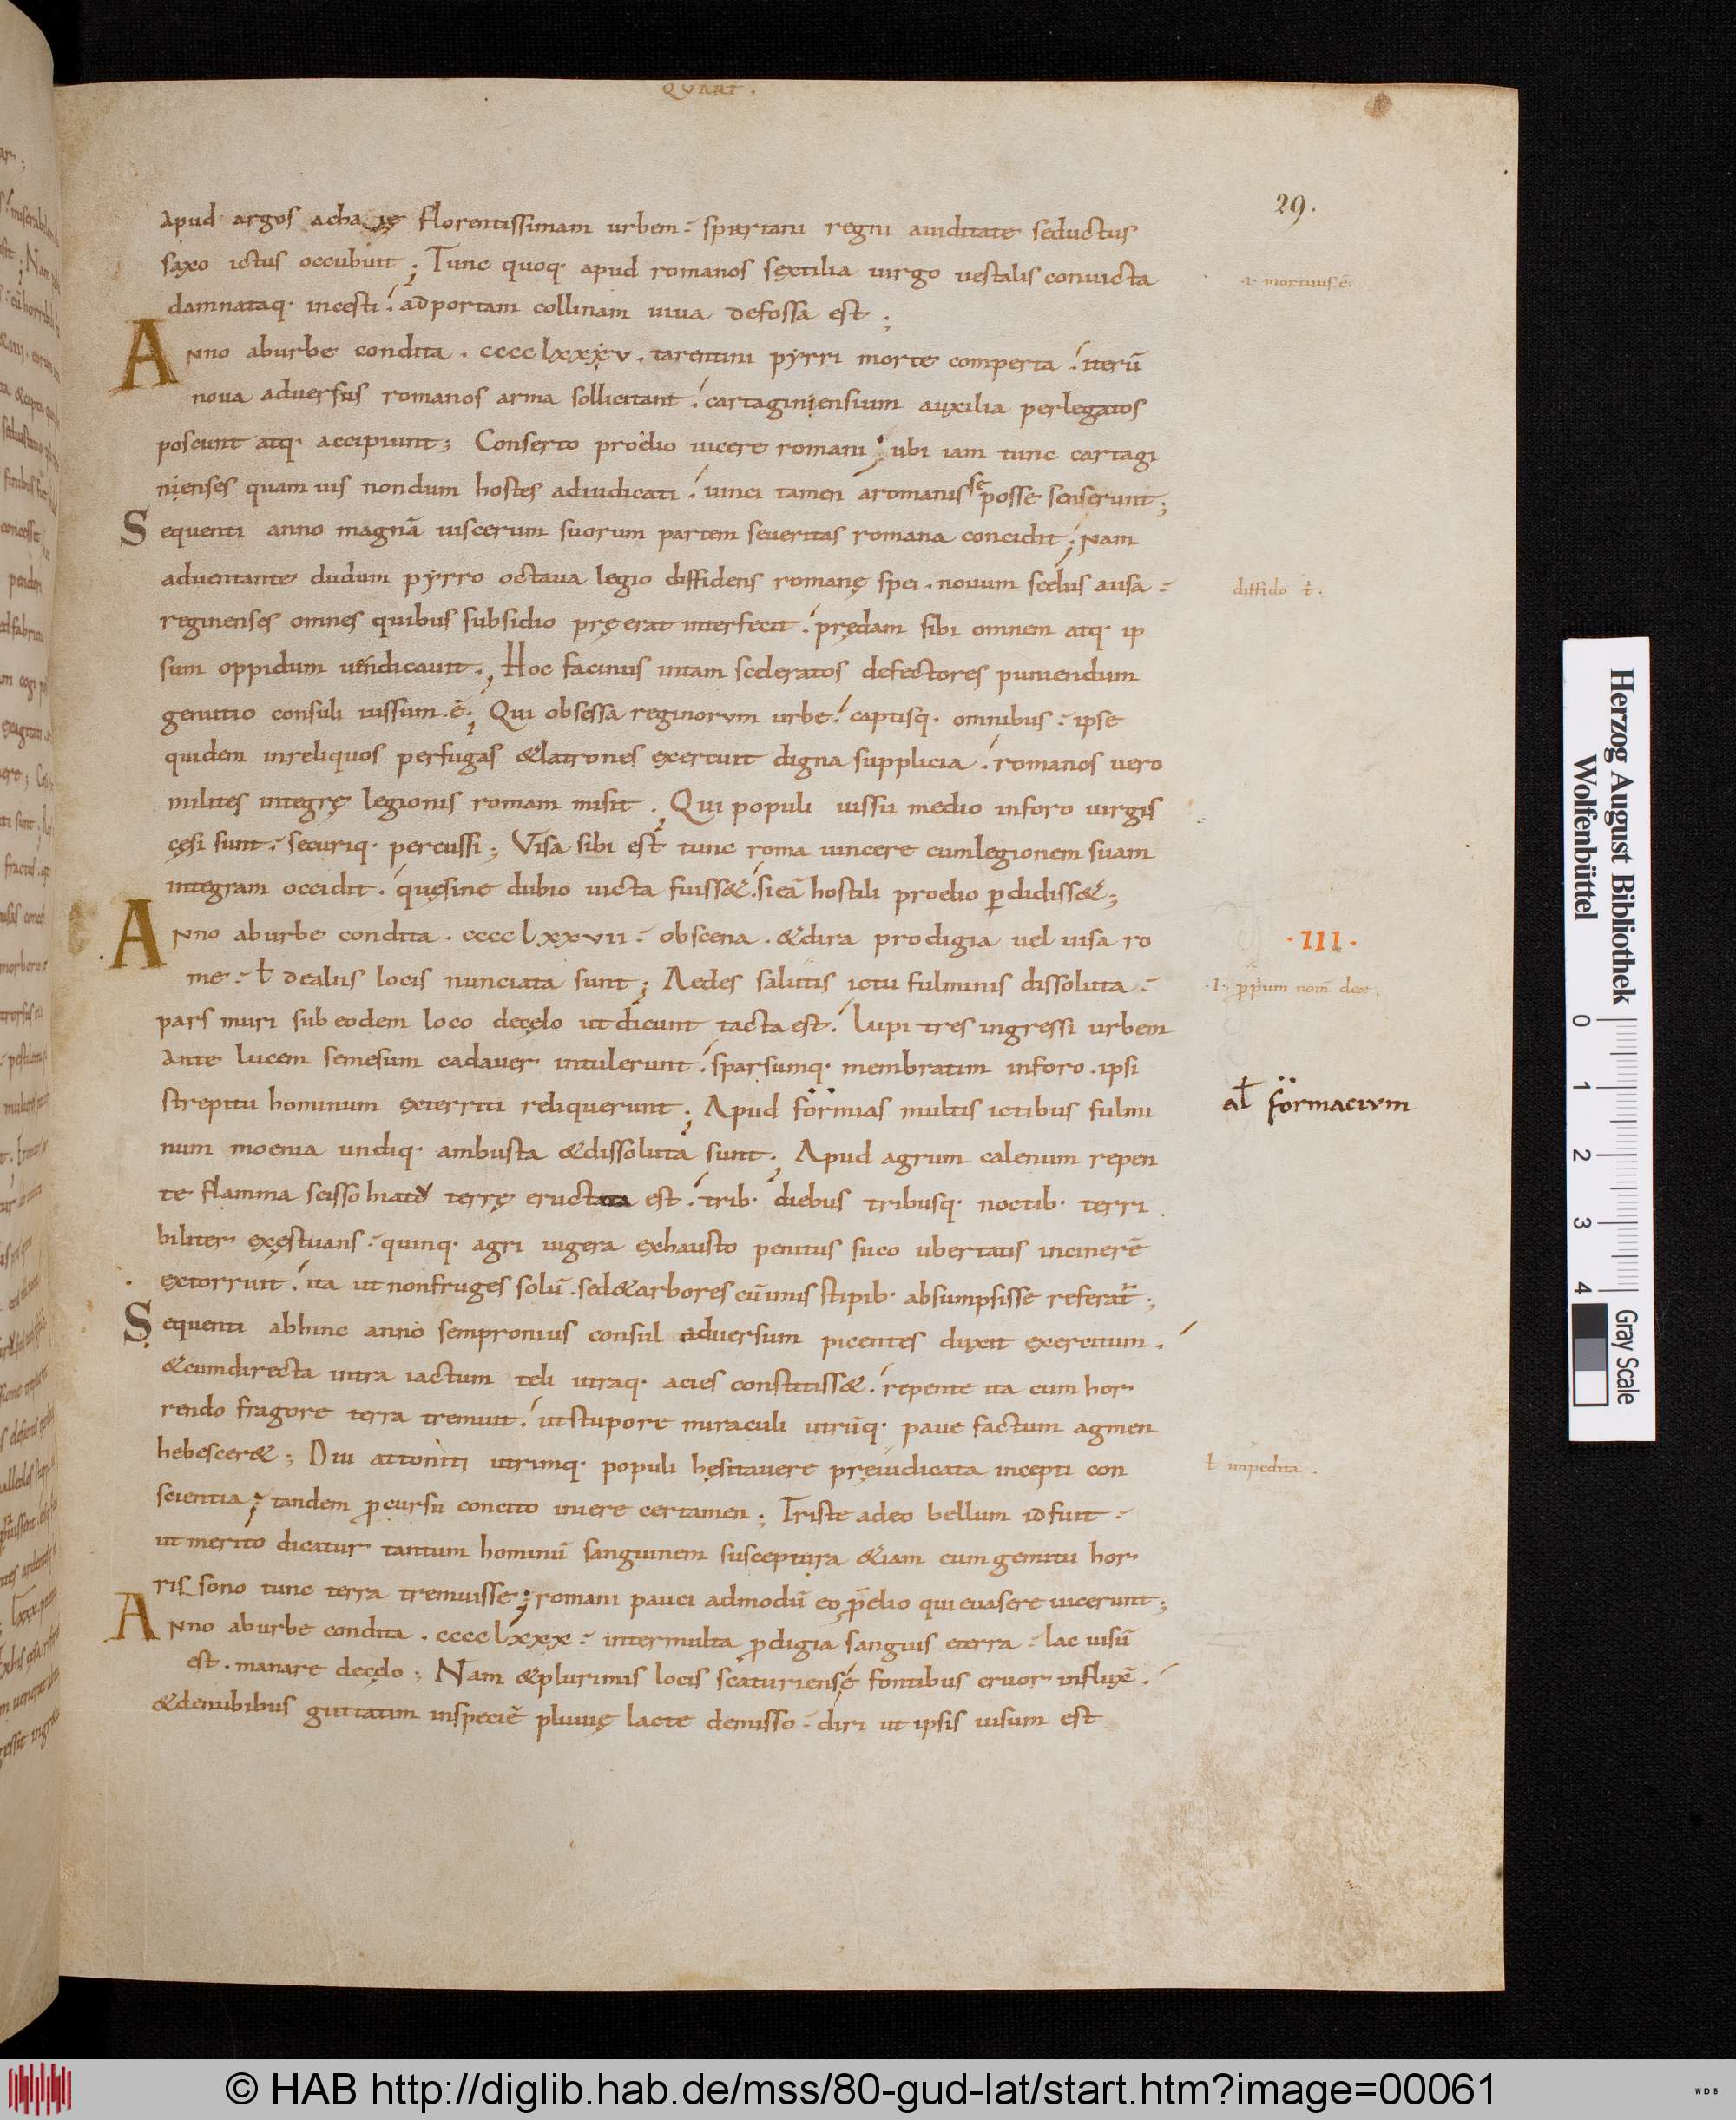 QVART.
29.
apud argos achaię florentissimam urbem; spartani regni auiditate seductus
saxo ictus occubuit; Tunc quoq· apud romanos sextilia uirgo uestalis conuicta
.i. mortuus ē.
damnataq· incesti. adportam collinam uiua defossa est;
Anno aburbe condita . cccclxxxv . tarentini pyrri morte comperta . iterū
noua aduersus romanos arma sollicitant. cartaginiensium auxilia perlegatos
poscunt atq· accipiunt; Conserto proelio uicere romani; ubi iam tunc cartagi
nienses quam uis nondum hostes adiudicati. uinci tamen aromanis se posse senserunt;
Sequenti anno magnā uiscerum suorum partem seueritas romana concidit; nam
aduentante dudum pyrro octaua legio diffidens romanę spei . nouum scelus ausa
diffido ł.
reginenses omnes quibus subsidio pręerat interfecit. prędam sibi omnem atq· ip
sum oppidum uendicauit; Hoc facinus intam sceleratos defectores puniendum
genutio consuli iussum .ē.; Qui obsessa reginorum urbe. captisq· omnibus: ipse
quidem inreliquos perfugas &latrones exercuit digna supplicia. romanos uero
milites integrę legionis romam misit; Qui populi iussu medio inforo uirgis
cęsi sunt: securiq· percussi; Visa sibi est tunc roma uincere cumlegionem suam
integram occidit. quęsine dubio uicta fuiss&. sieā hostili proelio p̱didiss&;
Anno aburbe condita . cccclxxvii: obscena . &dira prodigia uel uisa ro
·III·
me: ł dealus locis nunciata sunt; Aedes salutis ictu fulminis dissoluta:
pars muri sub eodem loco decęlo utdicunt tacta est. Lupi tres ingressi urbem
ante lucem semesum cadauer intulerunt. sparsumq· membratim inforo . ipsi
strepitu hominum exterriti reliquerunt; Apud formias multis ictibus fulmi
al̄ formacium
num moenia undiq· ambusta &dissoluta sunt; Apud agrum calenum repen
te flamma scisso hiatu terrę eructata est. trib· diebus tribusq· noctib· terri
biliter exęstuans: quinq· agri iugera exhausto penitus suco ubertatis incinerē
extorruit. ita ut nonfruges solū . sed&arbores cūimis stipib· absumpsisse referat̄;
Sequenti abhinc anno sempronius consul aduersum picentes duxit exercitum.
&cumdirecta intra iactum teli utraq· acies constitiss&. repente ita cum hor
rendo fragore terra tremuit. utstupore miraculi utrūq· paue factum agmen
hebescer&; Diu attoniti utrimq· populi hęsitauere pręiudicata incepti con
ł impedita .
scientia; tandem p̱cursu concito iniere certamen; Triste adeo bellum idfuit:
ut merito dicatur tantum hominū sanguinem susceptura &iam cum gemitu hor
ris sono tunc terra tremuisse; romani pauci admodū eo prę̄lio qui euasere uicerunt;
Anno aburbe condita . cccclxxx: intermulta p̱digia sanguis eterra: lac uisū
est . manare decęlo; Nam &plurimis locis scaturiense fontibus cruor influxē.
&denubibus guttatim inspeciē pluuię lacte demisso: diri ut ipsis uisum est
Herzog August Bibliothek
Wolfenbüttel
0 1 2 3 4
Gray Scale
© HAB http://diglib.hab.de/mss/80-gud-lat/start.htm?image=00061
WDB